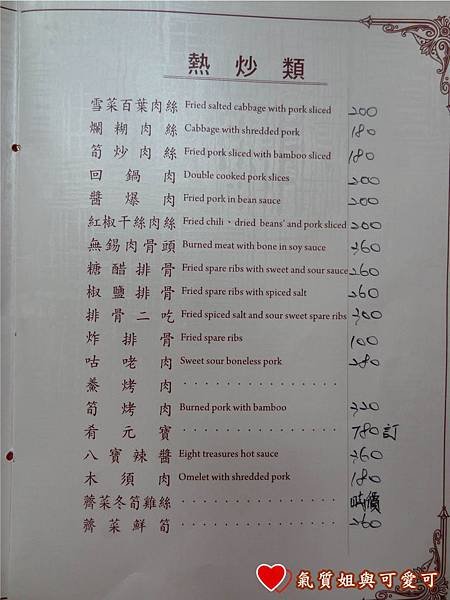 熱炒類
雪菜百葉肉絲 Fried salted cabbage with pork sliced 200
爛糊肉絲 Cabbage with shredded pork 180
筍炒肉絲 Fried pork sliced with bamboo sliced 180
回鍋肉 Double cooked pork slices 200
醬爆肉 Fried pork in bean sauce 200
紅椒干絲肉絲 Fried chili、dried beans' and pork sliced 200
無錫肉骨頭 Burned meat with bone in soy sauce 260
糖醋排骨 Fried spare ribs with sweet and sour sauce 260
椒鹽排骨 Fried spare ribs with spiced salt 260
排骨二吃 Fried spiced salt and sour sweet spare ribs 300
炸排骨 Fried spare ribs 100
咕咾肉 Sweet sour boneless pork 280
烤肉 ················
筍烤肉 Burned pork with bamboo 320
肴元寶 ················ 780訂
八寶辣醬 Eight treasures hot sauce 260
木須肉 Omelet with shredded pork 180
薺菜冬筍雞絲 ················ 時價
薺菜鮮筍 ················ 260
氣質姐與可愛可